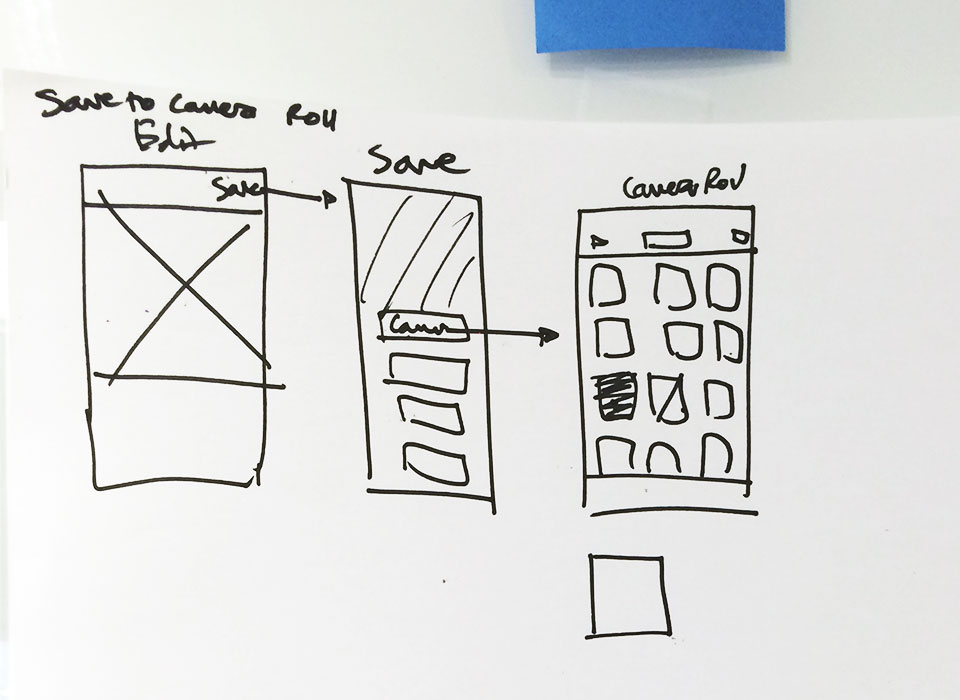 Save to Camera Roll
Edit
Save
Save
Camera
Camera Roll